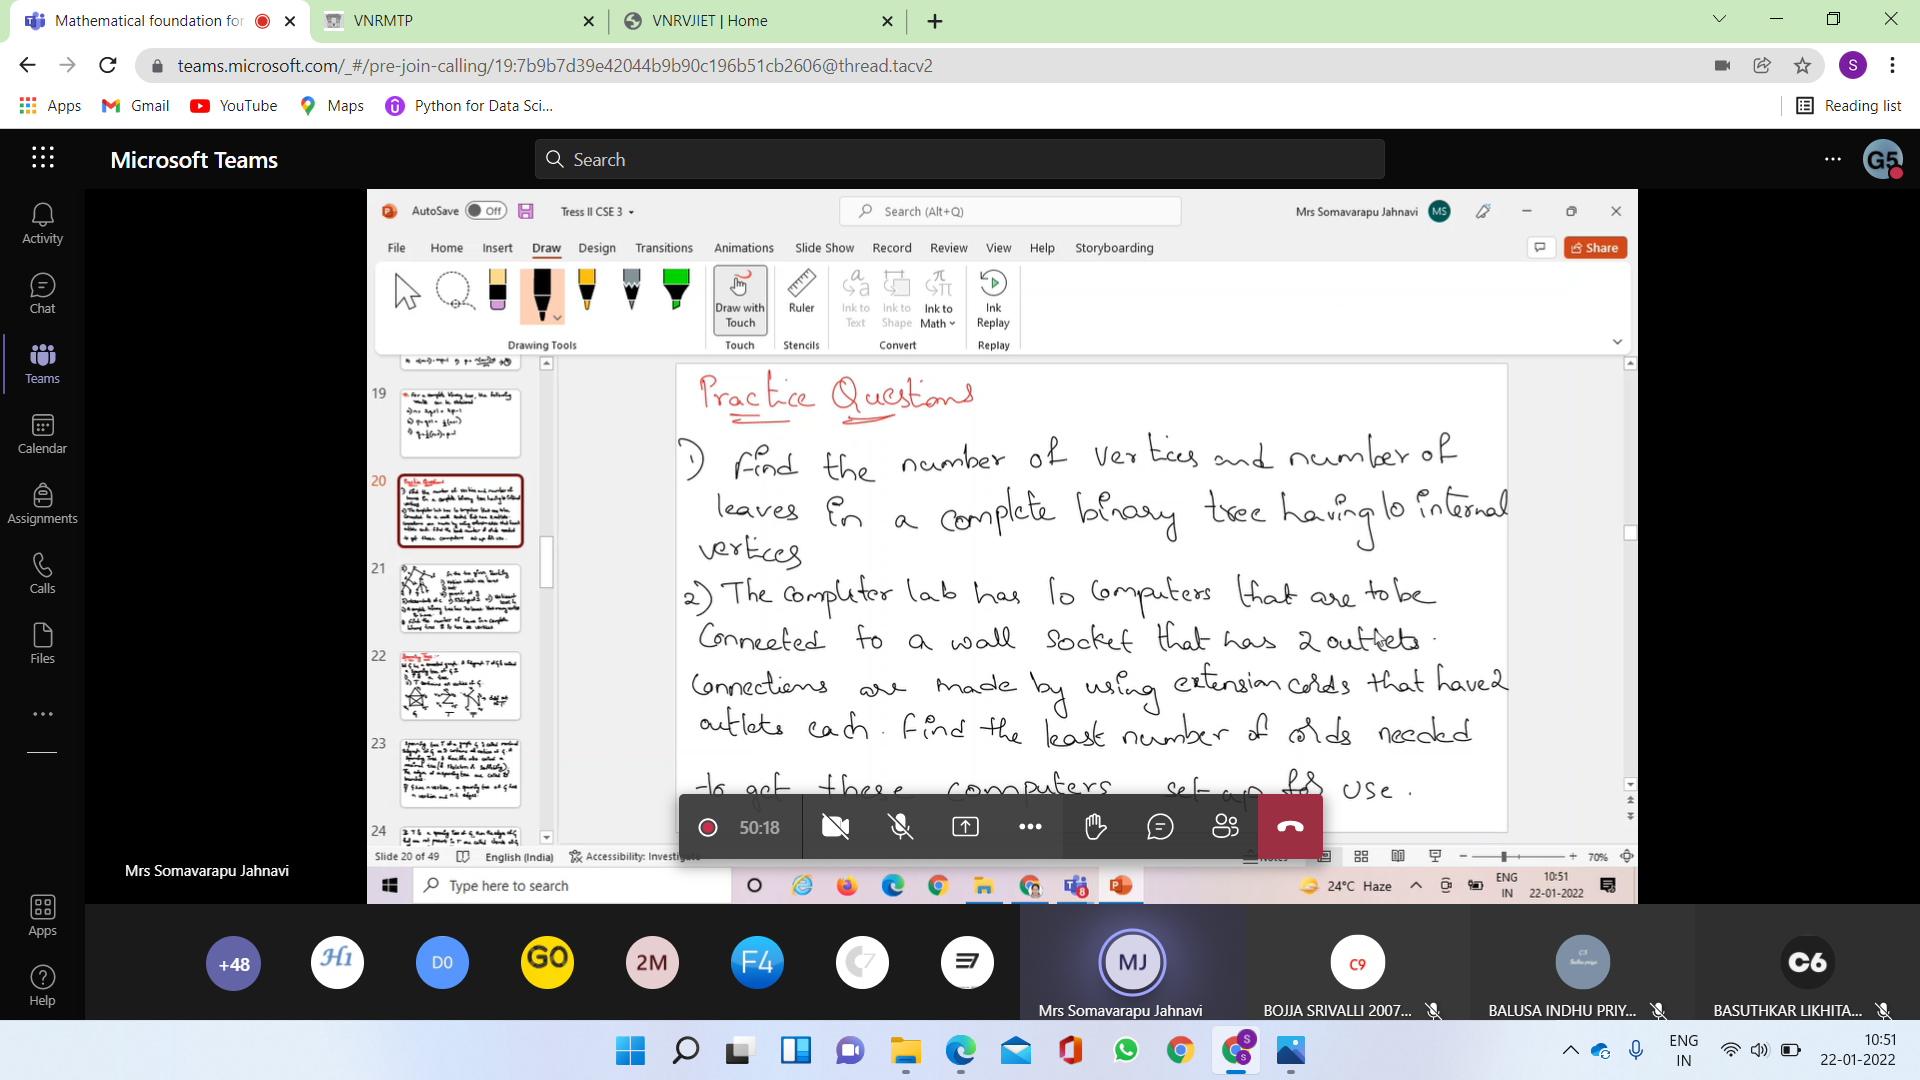 Mathematical foundation for
VNRMTP
VNRVJIET | Home
teams.microsoft.com/_#/pre-join-calling/19:7b9b7d39e42044b9b90c196b51cb2606@thread.tacv2
S
Apps Gmail YouTube Maps Python for Data Sci...
Reading list
Microsoft Teams
Search
G5
Activity
Chat
Teams
Calendar
Assignments
Calls
Files
Apps
Help
AutoSave Off Tress II CSE 3
Search (Alt+Q)
Mrs Somavarapu Jahnavi MS
File Home Insert Draw Design Transitions Animations Slide Show Record Review View Help Storyboarding
Share
Draw with Touch
Ruler
Ink to Text
Ink to Shape
Ink to Math
Ink Replay
Drawing Tools Touch Stencils Convert Replay
19
20
21
22
23
24
Practice Questions
1) Find the number of vertices and number of
leaves in a complete binary tree having 10 internal
vertices
2) The computer lab has 10 computers that are to be
Connected to a wall socket that has 2 outlets.
Connections are made by using extension cords that have 2
outlets each. Find the least number of cords needed
to get these computers set up for use.
50:18
Slide 20 of 49 English (India) Accessibility: Investigate
Notes
70%
Type here to search
24°C Haze
ENG IN
10:51
22-01-2022
Mrs Somavarapu Jahnavi
+48
H1
D0
GO
2M
F4
MJ
C9
C6
Mrs Somavarapu Jahnavi
BOJJA SRIVALLI 2007...
BALUSA INDHU PRIY...
BASUTHKAR LIKHITA...
ENG IN
10:51
22-01-2022